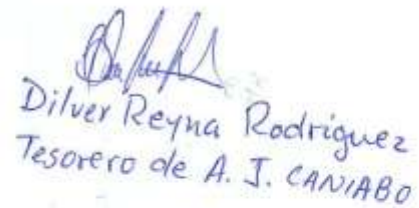 Dilver Reyna Rodriguez
Tesorero de A. J. CANIABO